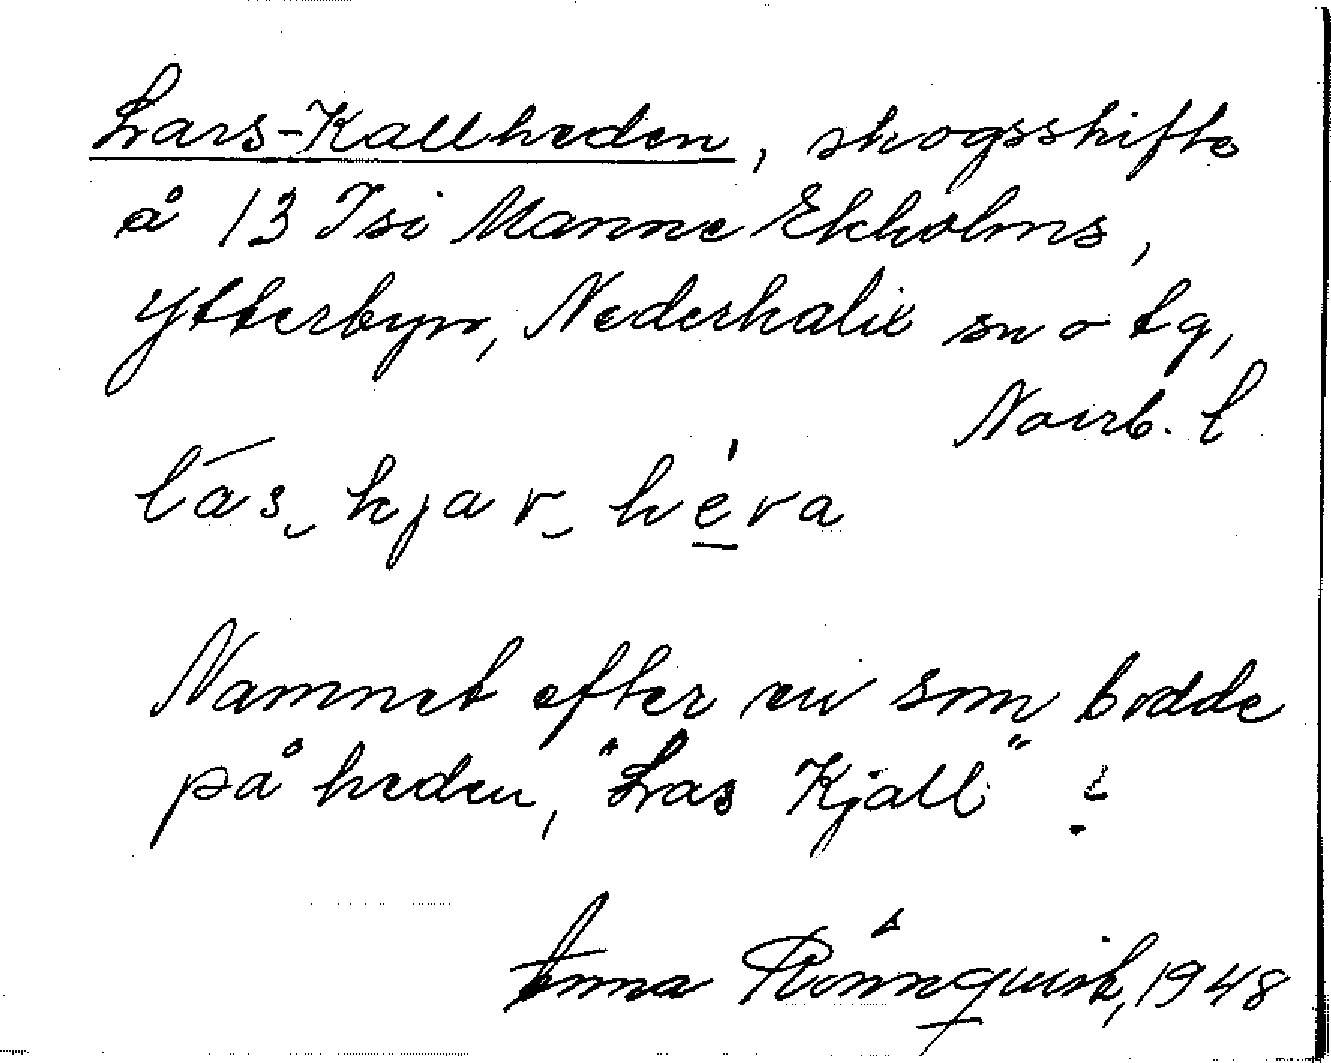 Lars-Kallheden, skogsskifte
å 13 Isi Manne Ekholms,
Ytterbyn, Nederkalix sn o tg,
Norrb. l
lās‿ kjar‿ hèva
Namnet efter en som bodde
på heden, "Las Kjäll" ?
Anna Rönnquist, 1948